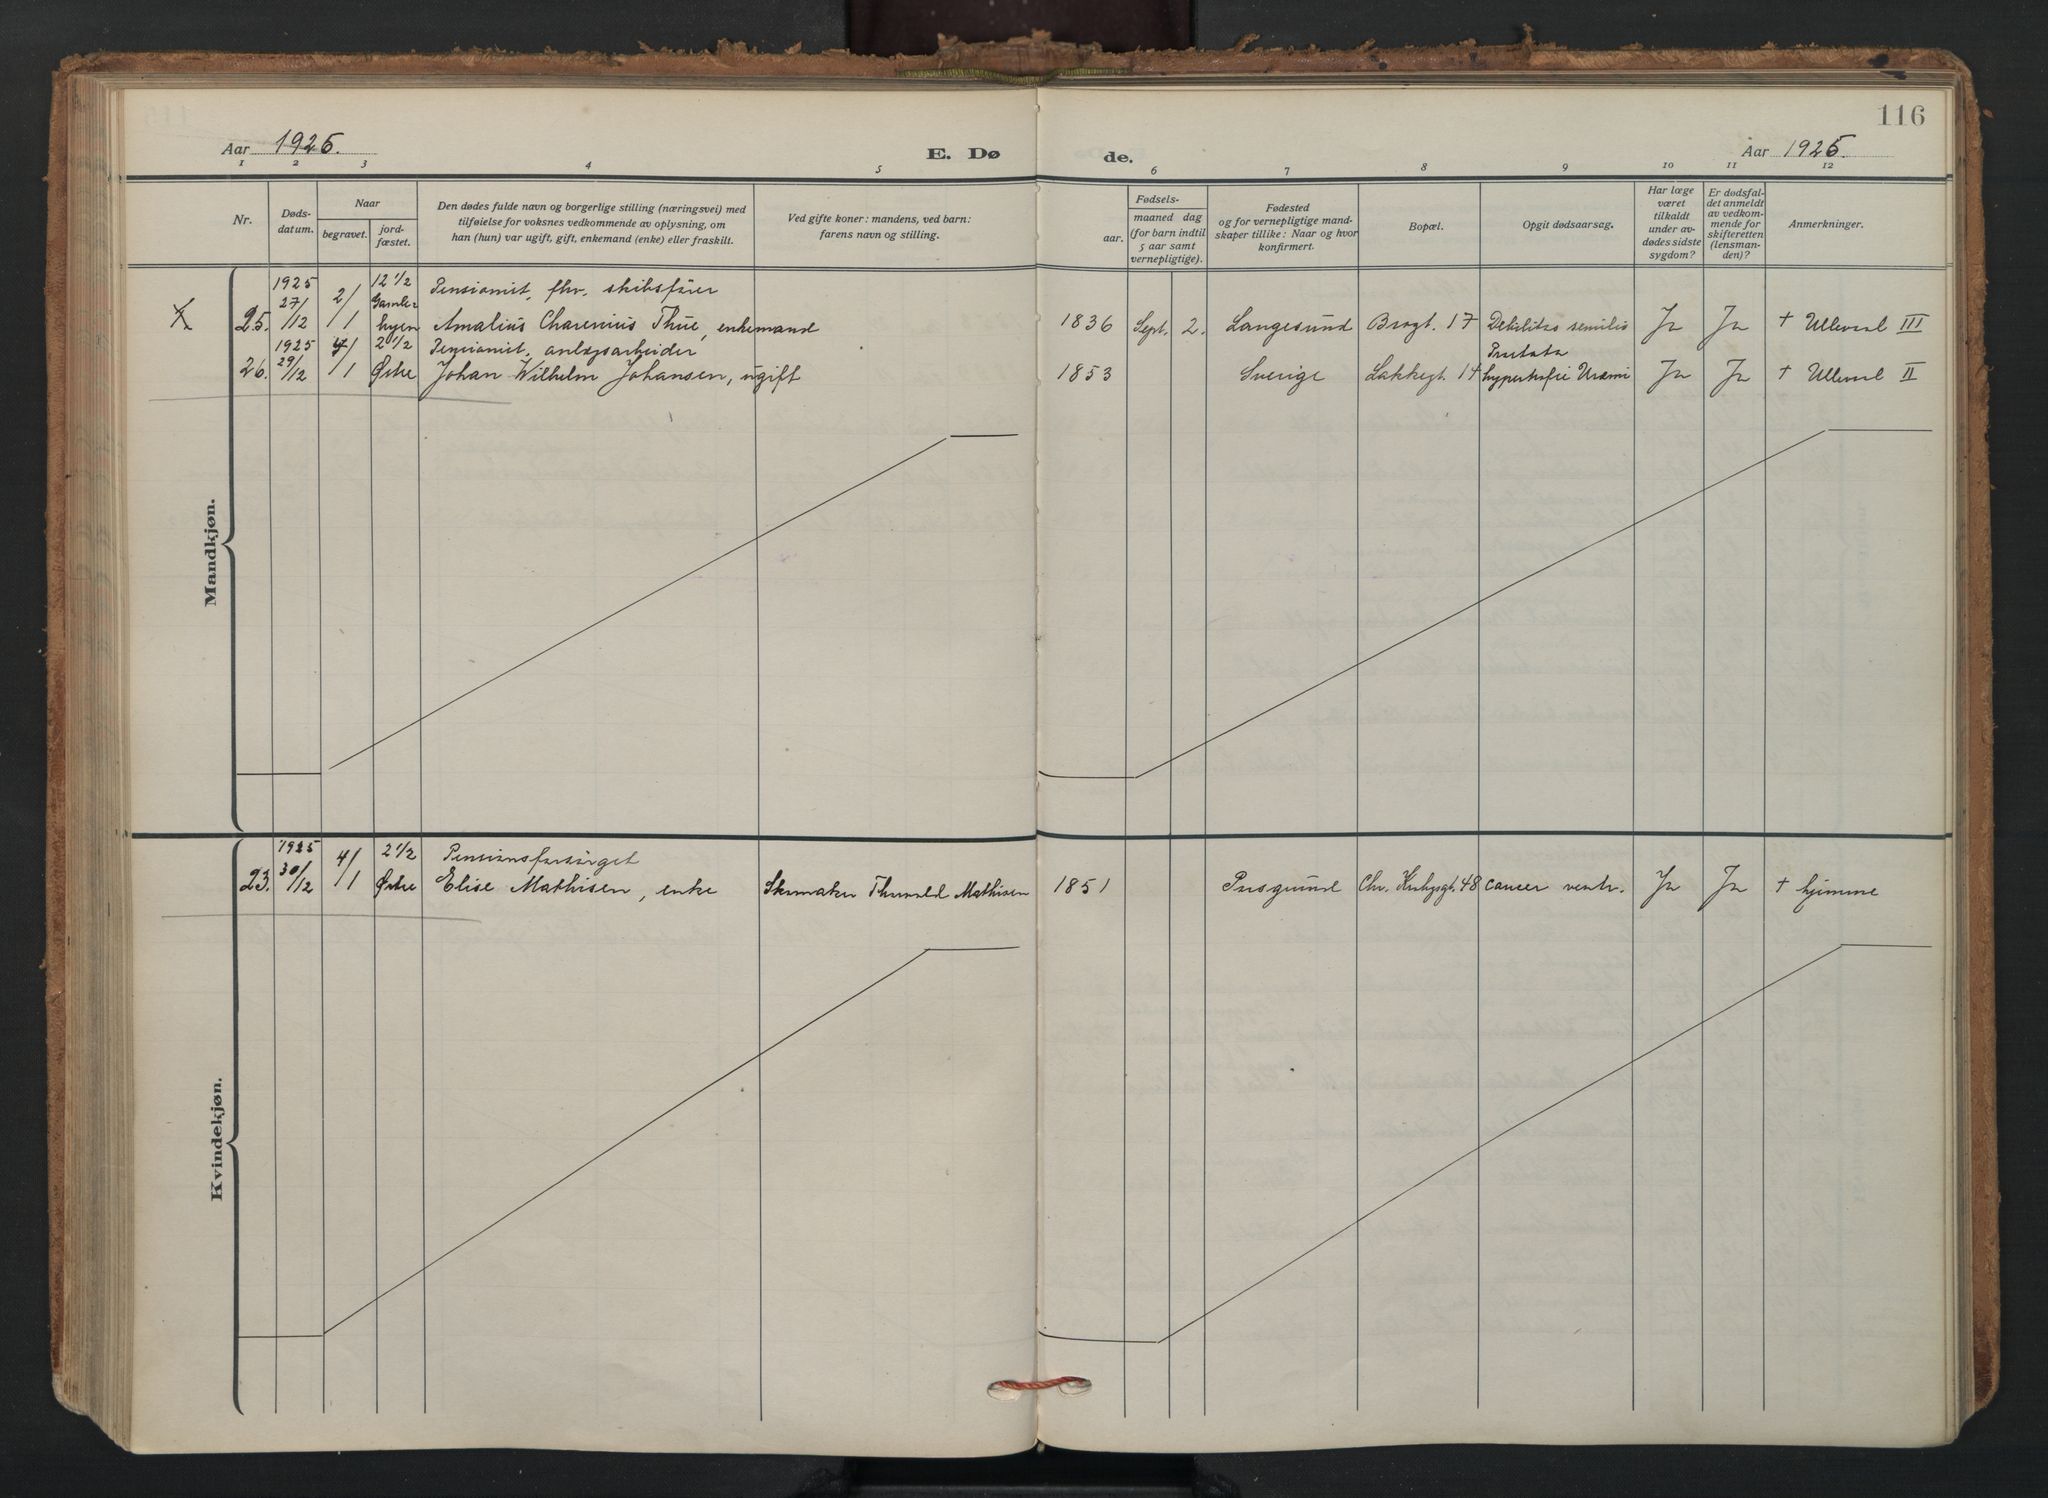 116
Aar 1925.
E. Dø
de.
Aar 1925.
1 2 3 4 5 6 7 8 9 10 11 12
Nr.
Døds-
datum.
Naar
begravet.
jord-
fæstet.
Den dødes fulde navn og borgerlige stilling (næringsvei) med
tilføielse for voksnes vedkommende av oplysning, om
han (hun) var ugift, gift, enkemand (enke) eller fraskilt.
Ved gifte koner: mandens, ved barn:
farens navn og stilling.
Fødsels-
aar.
maaned dag
(for barn indtil
5 aar samt
vernepligtige).
Fødested
og for vernepligtige mand-
skaper tillike: Naar og hvor
konfirmert.
Bopæl.
Opgit dødsaarsag.
Har læge
været
tilkaldt
under av-
dødes sidste
sygdom?
Er dødsfal-
det anmeldt
av vedkom-
mende for
skifteretten
(lensman-
den)?
Anmerkninger.
Mandkjøn.
1925 12 1/2 Pensionist, fhv. skibsfører
25. 27/12 2/1 Gamlebyen Amalius Charenius Thue, enkemand 1836 Sept. 2. Langesund Brogt. 17 Debilitas senilis Ja Ja + Ulleval III
1925 2 1/2 Pensionist, anlægsarbeider Prostata
26. 29/12 4/1 Østre Johan Wilhelm Johansen, ugift 1853 Sverige Lakkegt. 14 hypertrofie Uræmi Ja Ja + Ulleval II
Kvindekjøn.
1925 2 1/2 Pensionsforsørget
23. 30/12 4/1 Østre Elise Mathisen, enke Skomaker Thorvald Mathisen 1851 Porsgrund Chr. Krohgsgt. 48 cancer ventr. Ja Ja + hjemme